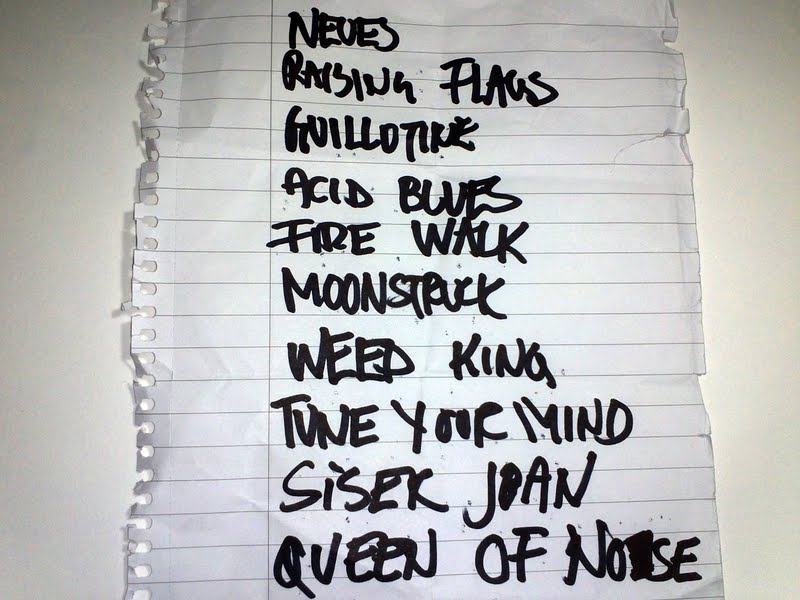 NEUES
RAISING FLAGS
GUILLOTINE
ACID BLUES
FIRE WALK
MOONSTRUCK
WEED KING
TUNE YOUR MIND
SISEK JOAN
QUEEN OF NOISE